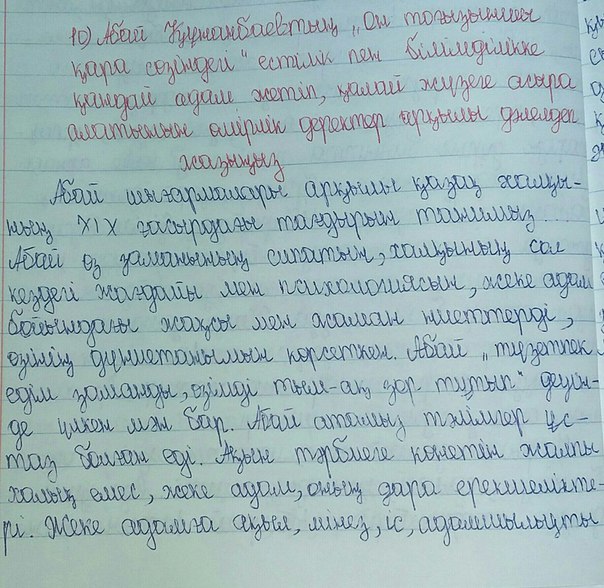 10) Абай Құнанбаевтың „Он тоғызыншы
қара сөзіндегі" естілік пен білімділікке
қандай адам жетіп, қалай жүзеге асыра
алатынын өмірлік деректер арқылы дәлелдеп
жазыңыз
Абай шығармалары арқылы қазақ халқы-
ның XIX ғасырдағы тағдырын танимыз...
Абай өз заманының сипатын, халқының сол
кездегі жағдайы мен психологиясын, жеке адам
бойындағы жақсы мен жаман ниеттерді,
өзінің дүниетанымын көрсеткен. Абай „түзетпек
едім заманды, өзімді тым-ақ зор тұтып" деуін-
де үлкен мән бар. Абай атамыз тәлімгер ұс-
таз болған еді. Ақын тәрбиеге көнетін жалпы
халық емес, жеке адам, оның дара ерекшелікте-
рі. Жеке адамға ақыл, мінез, іс, адамшылықты